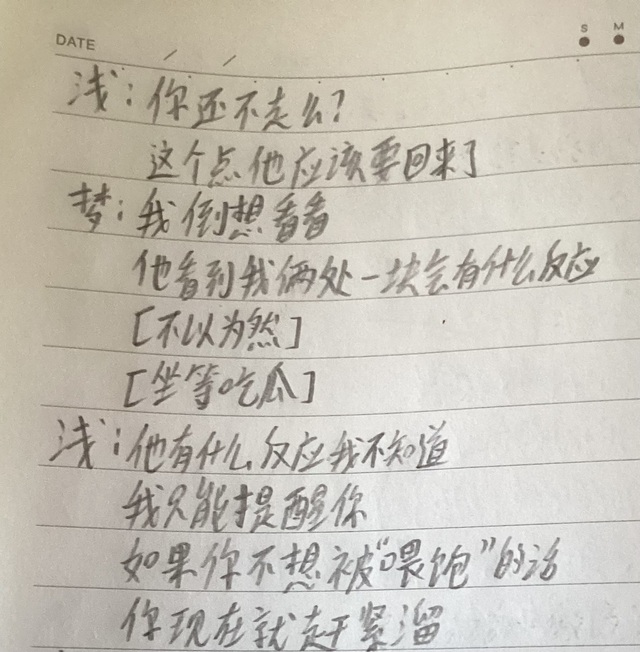 DATE
S M
浅：你还不走么？
这个点他应该要回来了
梦：我倒想看看
他看到我俩处一块会有什么反应
[不以为然]
[坐等吃瓜]
浅：他有什么反应我不知道
我只能提醒你
如果你不想被“喂饱”的话
你现在就赶紧溜